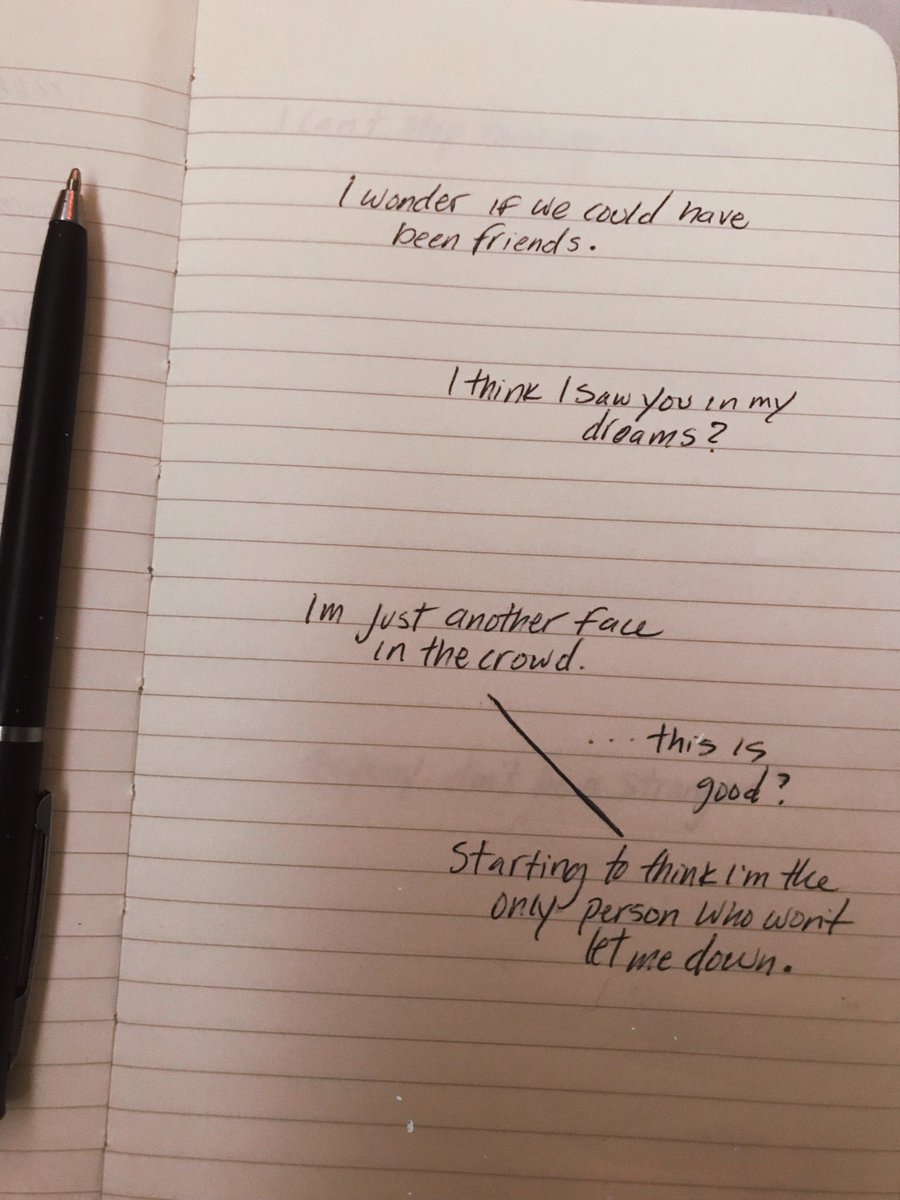 I wonder if we could have
been friends.
I think I saw you in my
dreams?
Im just another face
in the crowd.
... this is
good?
Starting to think i'm the
only person who won't
let me down.